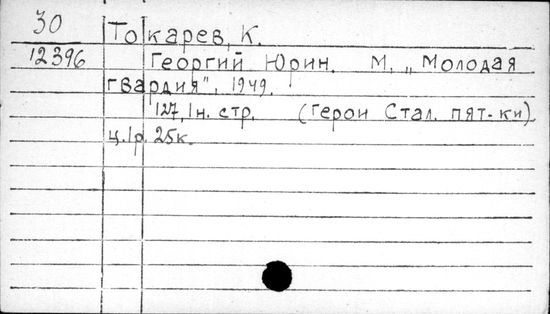 30
Токарев, К.
12396
Георгий Юрин. М, „Молодая
гвардия", 1949.
127, 1н. стр. (Герои Стал. пят-ки)
ц. 1р. 25к.